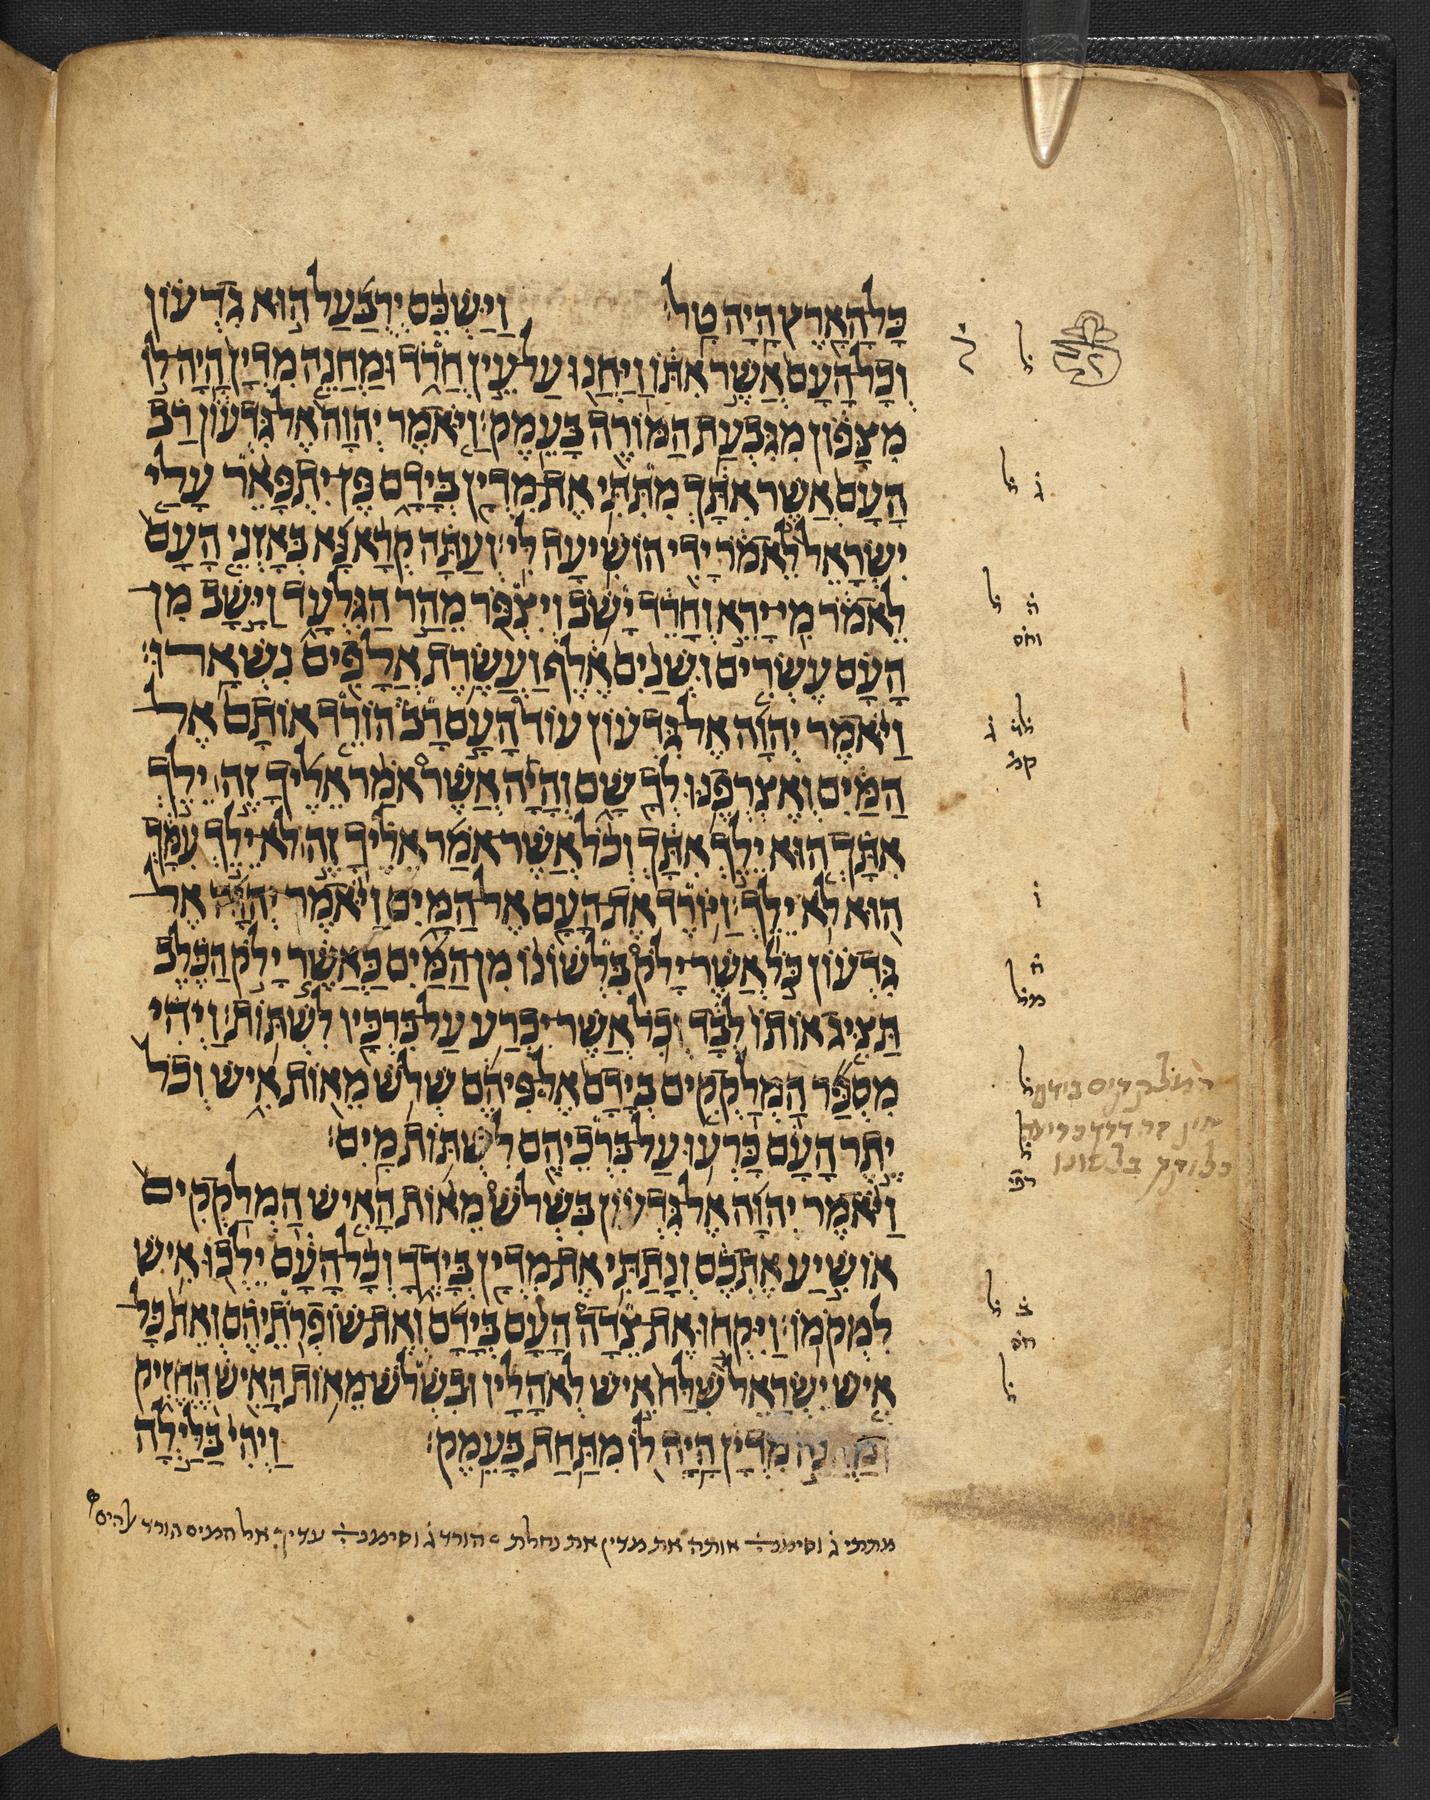 כָּל הָאָרֶץ הָיָה טָל׃ וַיַּשְׁכֵּם יְרֻבַּעַל הוּא גִדְעוֹן
וְכָל הָעָם אֲשֶׁר אִתּוֹ וַיַּחֲנוּ עַל עֵין חֲרֹד וּמַחֲנֵה מִדְיָן הָיָה לוֹ
מִצָּפוֹן מִגִּבְעַת הַמּוֹרֶה בָּעֵמֶק׃ וַיֹּאמֶר יְהוָה אֶל גִּדְעוֹן רַב
הָעָם אֲשֶׁר אִתָּךְ מִתִּתִּי אֶת מִדְיָן בְּיָדָם פֶּן יִתְפָּאֵר עָלַי
יִשְׂרָאֵל לֵאמֹר יָדִי הוֹשִׁיעָה לִּי׃ וְעַתָּה קְרָא נָא בְּאָזְנֵי הָעָם
לֵאמֹר מִי יָרֵא וְחָרֵד יָשֹׁב וְיִצְפֹּר מֵהַר הַגִּלְעָד וַיָּשָׁב מִן
הָעָם עֶשְׂרִים וּשְׁנַיִם אֶלֶף וַעֲשֶׂרֶת אֲלָפִים נִשְׁאָרוּ׃
וַיֹּאמֶר יְהוָה אֶל גִּדְעוֹן עוֹד הָעָם רָב הוֹרֵד אוֹתָם אֶל
הַמַּיִם וְאֶצְרְפֶנּוּ לְךָ שָׁם וְהָיָה אֲשֶׁר אֹמַר אֵלֶיךָ זֶה יֵלֵךְ
אִתָּךְ הוּא יֵלֵךְ אִתָּךְ וְכֹל אֲשֶׁר אֹמַר אֵלֶיךָ זֶה לֹא יֵלֵךְ עִמָּךְ
הוּא לֹא יֵלֵךְ׃ וַיּוֹרֶד אֶת הָעָם אֶל הַמָּיִם וַיֹּאמֶר יְהוָה אֶל
גִּדְעוֹן כֹּל אֲשֶׁר יָלֹק בִּלְשׁוֹנוֹ מִן הַמַּיִם כַּאֲשֶׁר יָלֹק הַכֶּלֶב
תַּצִּיג אוֹתוֹ לְבָד וְכֹל אֲשֶׁר יִכְרַע עַל בִּרְכָּיו לִשְׁתּוֹת׃ וַיְהִי
מִסְפַּר הַמְלַקְקִים בְּיָדָם אֶל פִּיהֶם שְׁלֹשׁ מֵאוֹת אִישׁ וְכֹל
יֶתֶר הָעָם כָּרְעוּ עַל בִּרְכֵיהֶם לִשְׁתּוֹת מָיִם׃
וַיֹּאמֶר יְהוָה אֶל גִּדְעוֹן בִּשְׁלֹשׁ מֵאוֹת הָאִישׁ הַמְלַקְקִים
אוֹשִׁיעַ אֶתְכֶם וְנָתַתִּי אֶת מִדְיָן בְּיָדֶךָ וְכָל הָעָם יֵלְכוּ אִישׁ
לִמְקֹמוֹ׃ וַיִּקְחוּ אֶת צֵדָה הָעָם בְּיָדָם וְאֵת שׁוֹפְרֹתֵיהֶם וְאֵת כָּל
אִישׁ יִשְׂרָאֵל שִׁלַּח אִישׁ לְאֹהָלָיו וּבִשְׁלֹשׁ מֵאוֹת הָאִישׁ הֶחֱזִיק
וּמַחֲנֵה מִדְיָן הָיָה לוֹ מִתַּחַת בָּעֵמֶק׃ וַיְהִי בַּלַּיְלָה
ל
ל
ג ל
ל
וחס
קמ
ו
ל
ל
חס
ל
מתתי ג וסימנ אותה את מדין את נחלת הורד ג וסימנ עדיך אל המים